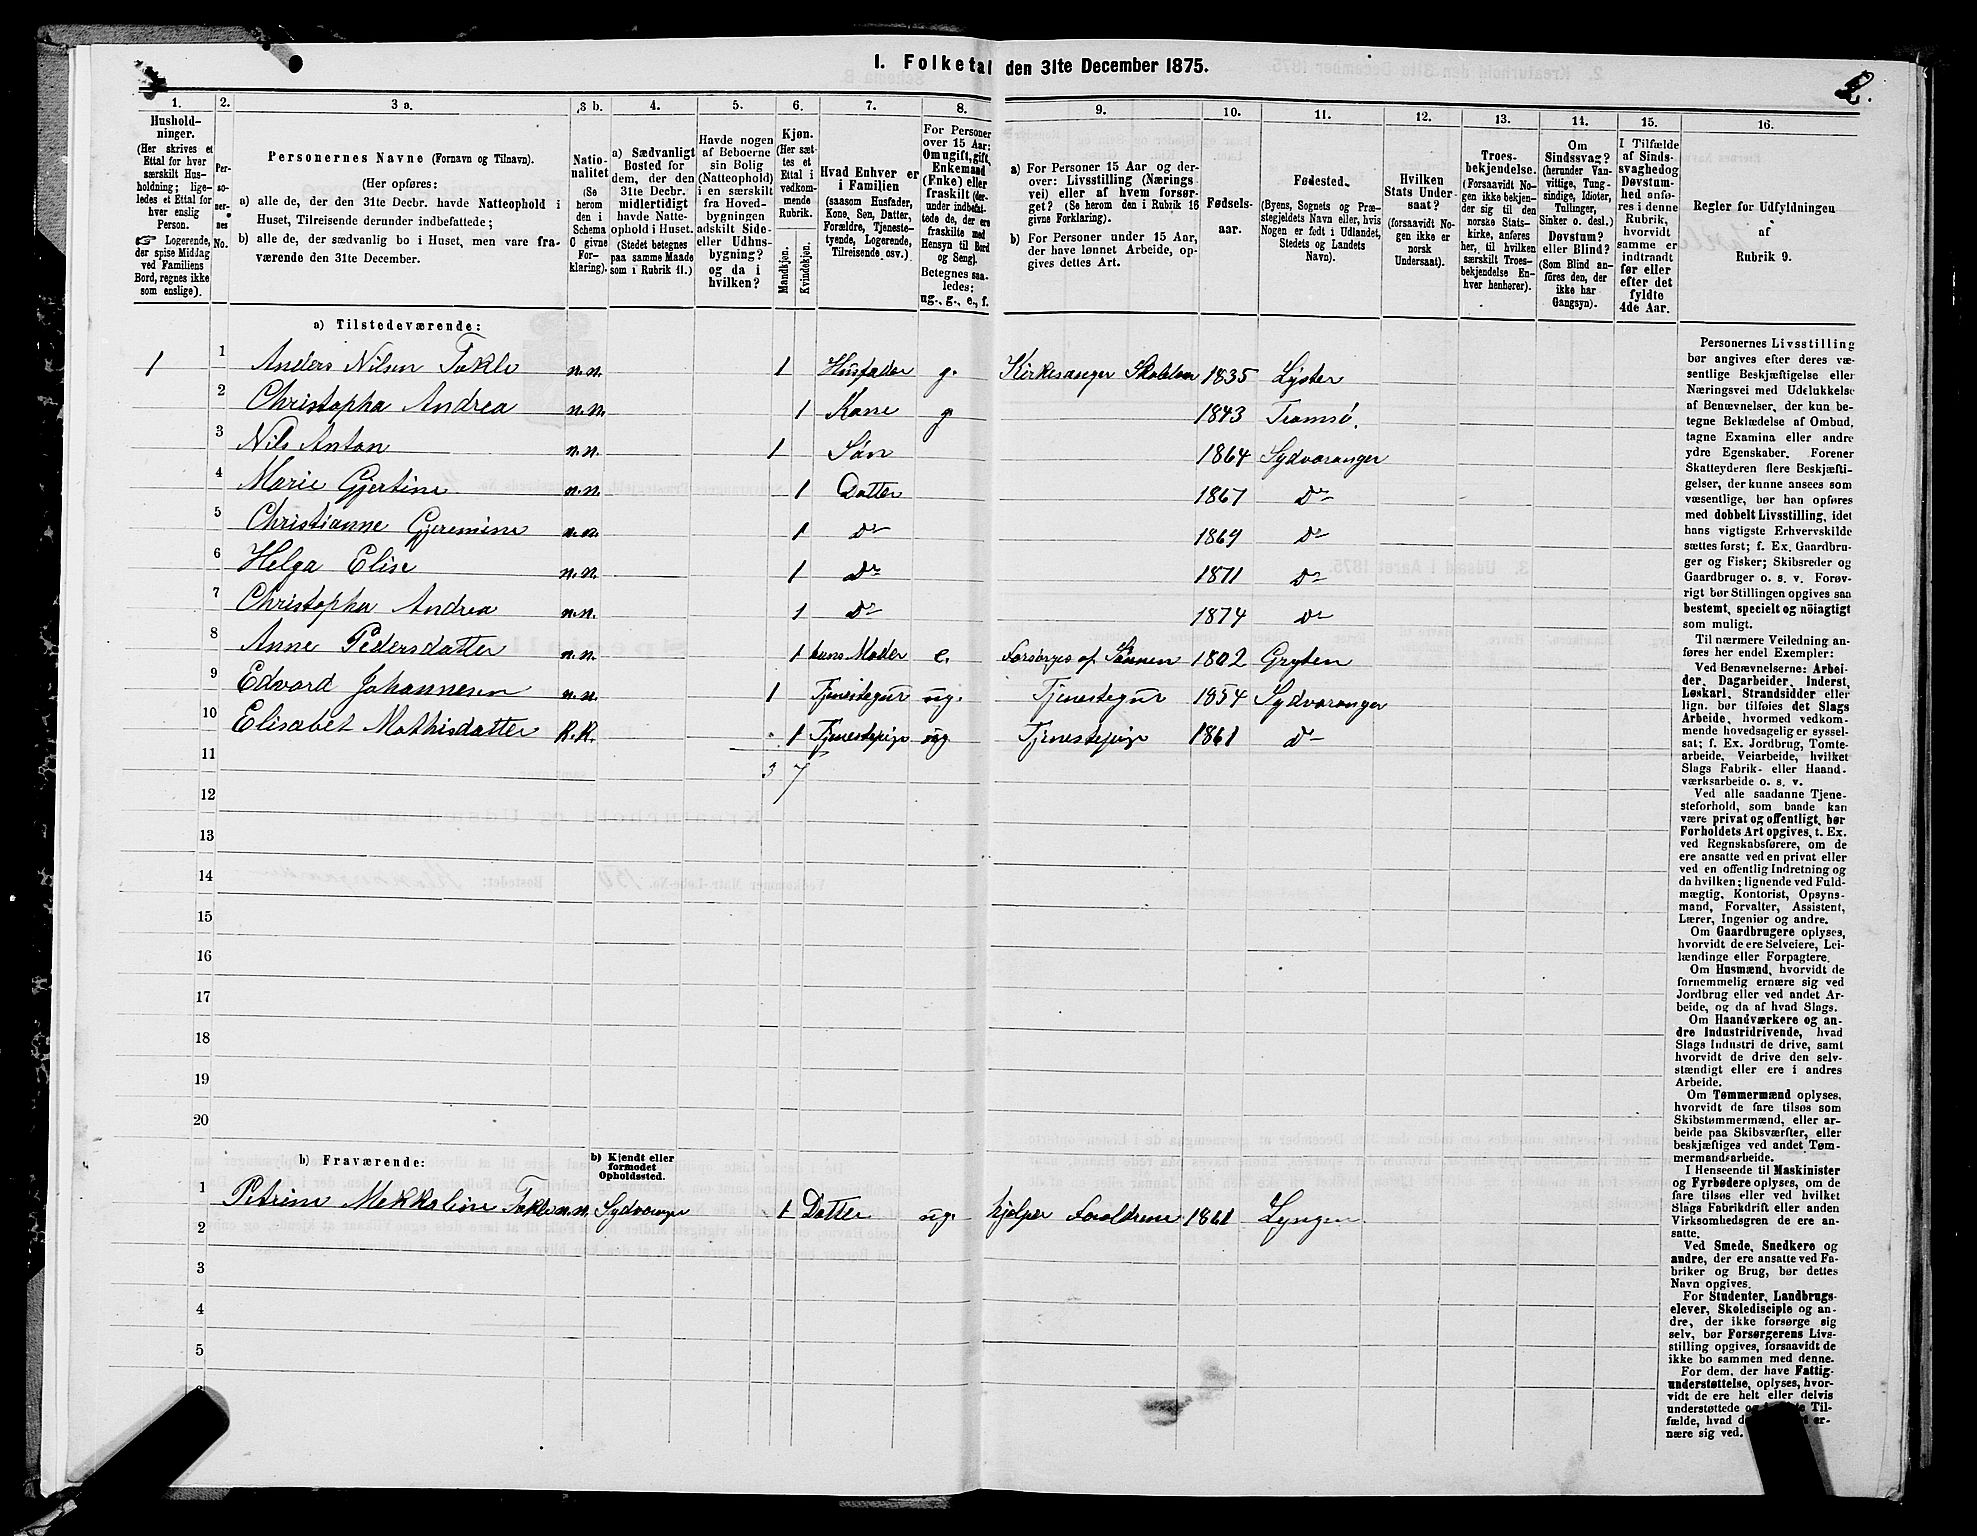 1. Folketal den 31te December 1875.
2.
1.
Husholdninger.
(Her skrives et
Ettal for hver
særskilt Husholdning;
ligeledes et Ettal for
hver enslig
Person.
☞ Logerende,
der spise Middag
ved Familiens
Bord, regnes ikke
som enslige).
2.
Personernes
No.
3 a.
Personernes Navne (Fornavn og Tilnavn).
(Her opføres:
a) alle de, der den 31te Decbr. havde Natteophold i
Huset, Tilreisende derunder indbefattede;
b) alle de, der sædvanlig bo i Huset, men vare fraværende
den 31te December.
3 b.
Nationalitet
(Se
herom
den i
Schema
C givne
Forklaring).
4.
a) Sædvanligt
Bosted for
dem, der den
31te Decbr.
midlertidigt
havde Natteophold
i Huset.
(Stedet betegnes
paa samme Maade
som i Rubrik 11.)
5.
Havde nogen
af Beboerne
sin Bolig
(Natteophold)
i en særskilt
fra Hovedbygningen
adskilt Side-
eller Udhusbygning?
og da i
hvilken?
6.
Kjøn.
(Her sættes
et
Ettal i
vedkommende
Rubrik.
Mandkjøn.
Kvindekjøn.
7.
Hvad Enhver er
i Familien
(saasom Husfader,
Kone, Søn, Datter,
Forældre, Tjenestetyende,
Logerende,
Tilreisende osv.).
8.
For Personer
over 15 Aar:
Om ugift, gift,
Enkemand
(Enke) eller
fraskilt (derunder
indbefattede
de, der ere
fraskilte med
Hensyn til Bord
og Seng).
Betegnes saaledes:
ug., g., e., f.
9.
a) For Personer 15 Aar og derover:
Livsstilling (Næringsvei)
eller af hvem forsørget?
(Se herom den i Rubrik 16
givne Forklaring).
b) For Personer under 15 Aar,
der have lønnet Arbeide, opgives
dettes Art.
10.
Fødselsaar.
11.
Fødested.
(Byens, Sognets og Præstegjeldets
Navn eller, hvis
Nogen er født i Udlandet,
Stedets og Landets
Navn).
12.
Hvilken
Stats Undersaat?
(forsaavidt Nogen
ikke er
norsk
Undersaat).
13.
Troesbekjendelse.
(Forsaavidt Nogen
ikke bekjender
sig til den
norske Statskirke,
anføres
her, til hvilken
særskilt Troesbekjendelse
Enhver
henhører).
14.
Om
Sindssvag?
(herunder Vanvittige,
Tungsindige,
Idioter,
Tullinger,
Sinker o. desl.)
Døvstum?
eller Blind?
(Som Blind anføres
den, der
ikke har
Gangsyn).
15.
I Tilfælde
af Sindssvaghed og
Døvstumhed
anføres
i denne
Rubrik,
hvorvidt
samme er
indtraadt
før eller
efter det
fyldte
4de Aar.
16.
Regler for Udfyldningen
af
Rubrik 9.
a) Tilstedeværende:
1 1 Anders Nilsen Takle n.n. 1 Husfader g. Kirkesanger Skolelær 1835 Lyster
2 Christopha Andrea n.n. 1 Kone g 1843 Tromsø.
3 Nils Anton n.n. 1 Søn 1864 Sydvaranger
4 Marie Gjertine n.n. 1 Datter 1867 do
5 Christianne Gjeremine n.n. 1 do 1869 do
6 Helga Elise n.n. 1 do 1871 do
7 Christopha Andrea n.n. 1 do 1874 do
8 Anne Pedersdatter n.n. 1 hans Moder e. Forsørges af Sønnen 1802 Gryten
9 Edvard Johannesen n.n. 1 Tjenestegut ug. Tjenestegut 1854 Sydvaranger
10 Elisabet Mathisdatter R.R. 1 Tjenestepige ug Tjenestepige 1861 do
11 3 7
12
13
14
15
16
17
18
19
20
b) Fraværende:
b) Kjendt eller
formodet
Opholdssted.
1 Petrine Mekkeline Takle n.n. Sydvaranger 1 Datter ug. hjelper Forældrene 1861 Lyngen
2
3
4
5
Personernes Livsstilling
bør angives efter deres væsentlige
Beskjæftigelse eller
Næringsvei med Udelukkelse
af Benævnelser, der kun betegne
Beklædelse af Ombud,
tagne Examina eller andre
ydre Egenskaber. Forener
Skatteyderen flere Beskjæftigelser,
der kunne ansees som
væsentlige, bør han opføres
med dobbelt Livsstilling, idet
hans vigtigste Erhvervskilde
sættes først; f. Ex. Gaardbruger
og Fisker; Skibsreder og
Gaardbruger o. s. v. Forøvrigt
bør Stillingen opgives saa
bestemt, specielt og nöiagtigt
som muligt.
Til nærmere Veiledning anføres
her endel Exempler:
Ved Benævnelserne: Arbeider,
Dagarbeider, Inderst,
Løskarl, Strandsidder eller
lign. bør tilføies det Slags
Arbeide, hvormed vedkommende
hovedsagelig er sysselsat;
f. Ex. Jordbrug, Tomtearbeide,
Veiarbeide, hvilket
Slags Fabrik- eller Haandværksarbeide
o. s. v.
Ved alle saadanne Tjenesteforhold,
som baade kan
være privat og offentligt, bør
Forholdets Art opgives, t. Ex.
ved Regnskabsførere, om de
ere ansatte ved en privat eller
ved en offentlig Indretning og
da hvilken; lignende ved Fuldmægtig,
Kontorist, Opsynsmand,
Forvalter, Assistent,
Lærer, Ingeniør og andre.
Om Gaardbrugere oplyses,
hvorvidt de ere Selveiere, Leilændinge
eller Forpagtere.
Om Husmænd, hvorvidt de
fornemmelig ernære sig ved
Jordbrug eller ved andet Arbeide,
og da af hvad Slags.
Om Haandværkere og andre
Industridrivende, hvad
Slags Industri de drive, samt
hvorvidt de drive den selvstændigt
eller ere i andres
Arbeide.
Om Tømmermænd oplyses,
hvorvidt de fare tilsøs som
Skibstømmermænd, eller arbeide
paa Skibsværfter, eller
beskjæftiges ved andet Tømmermandsarbeide.
I Henseende til Maskinister
og Fyrbødere oplyses, om de
fare tilsøs eller ved hvilket
Slags Fabrikdrift eller anden
Virksomhedsgren de ere ansatte.
Ved Smede, Snedkere og
andre, der ere ansatte ved Fabriker
og Brug, bør dettes
Navn opgives.
For Studenter, Landbrugselever,
Skoledisciple og andre,
der ikke forsørge sig
selv, bør Forsørgerens Livsstilling
opgives, forsaavidt de
ikke bo sammen med denne.
For dem, der have Fattigunderstøttelse,
oplyses, hvorvidt
de ere helt eller delvis
understøttede og
Tilfælde,
hvad
ernære
sig ved.